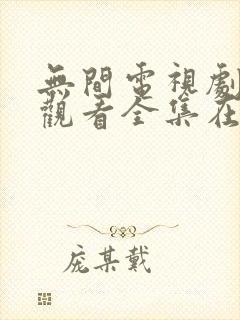 無間電視劇
觀看全集在
庞某戴